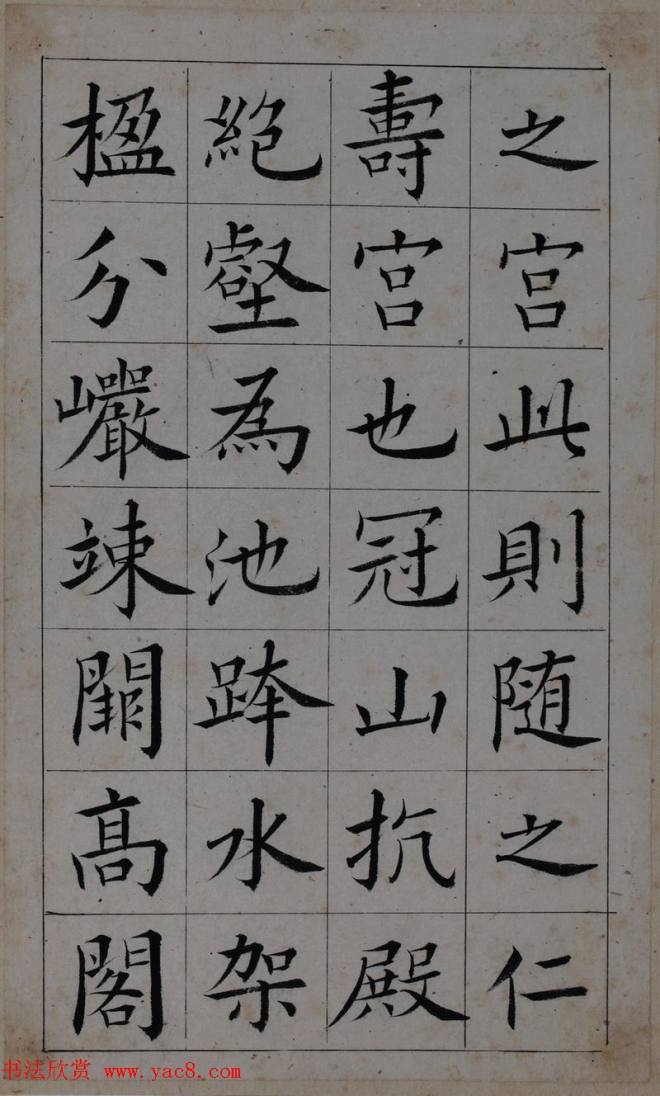 之宫此則随之仁
壽宫也冠山抗殿
絶壑為池跨水架
楹分巗竦闕髙閣
书法欣赏 www.yac8.com